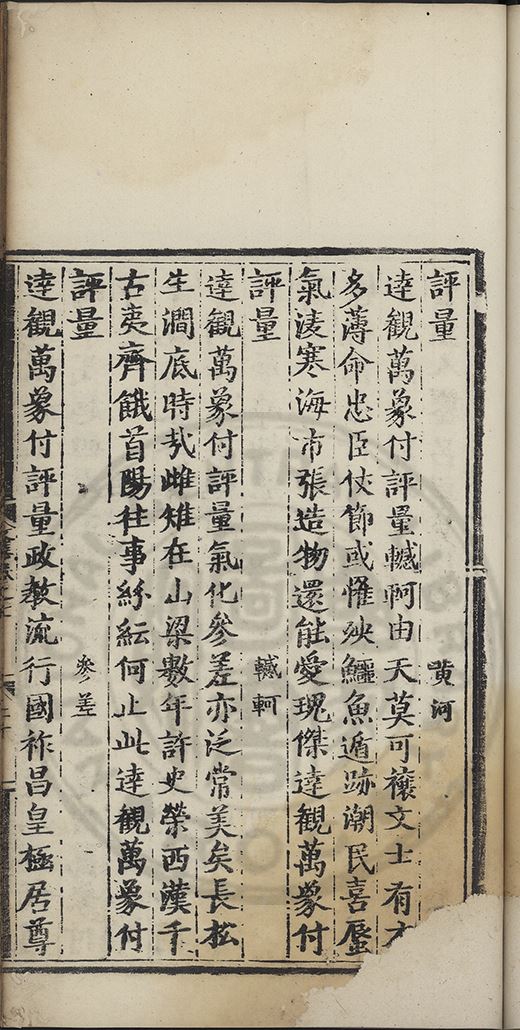 評量 黄河
達觀萬象付評量轗軻由天莫可禳文士有才
多薄命忠臣伏節或懼殃鱷魚遁跡潮民喜蜃
氣淩寒海市張造物還能愛瑰傑達觀萬象付
評量 轗軻
達觀萬象付評量氣化參差亦泛常美矣長松
生澗底時哉雌雉在山梁數年許史榮西漢千
古夷齊餓首陽往事紛紜何止此達觀萬象付
評量 參差
達觀萬象付評量政教流行國祚昌皇極居尊